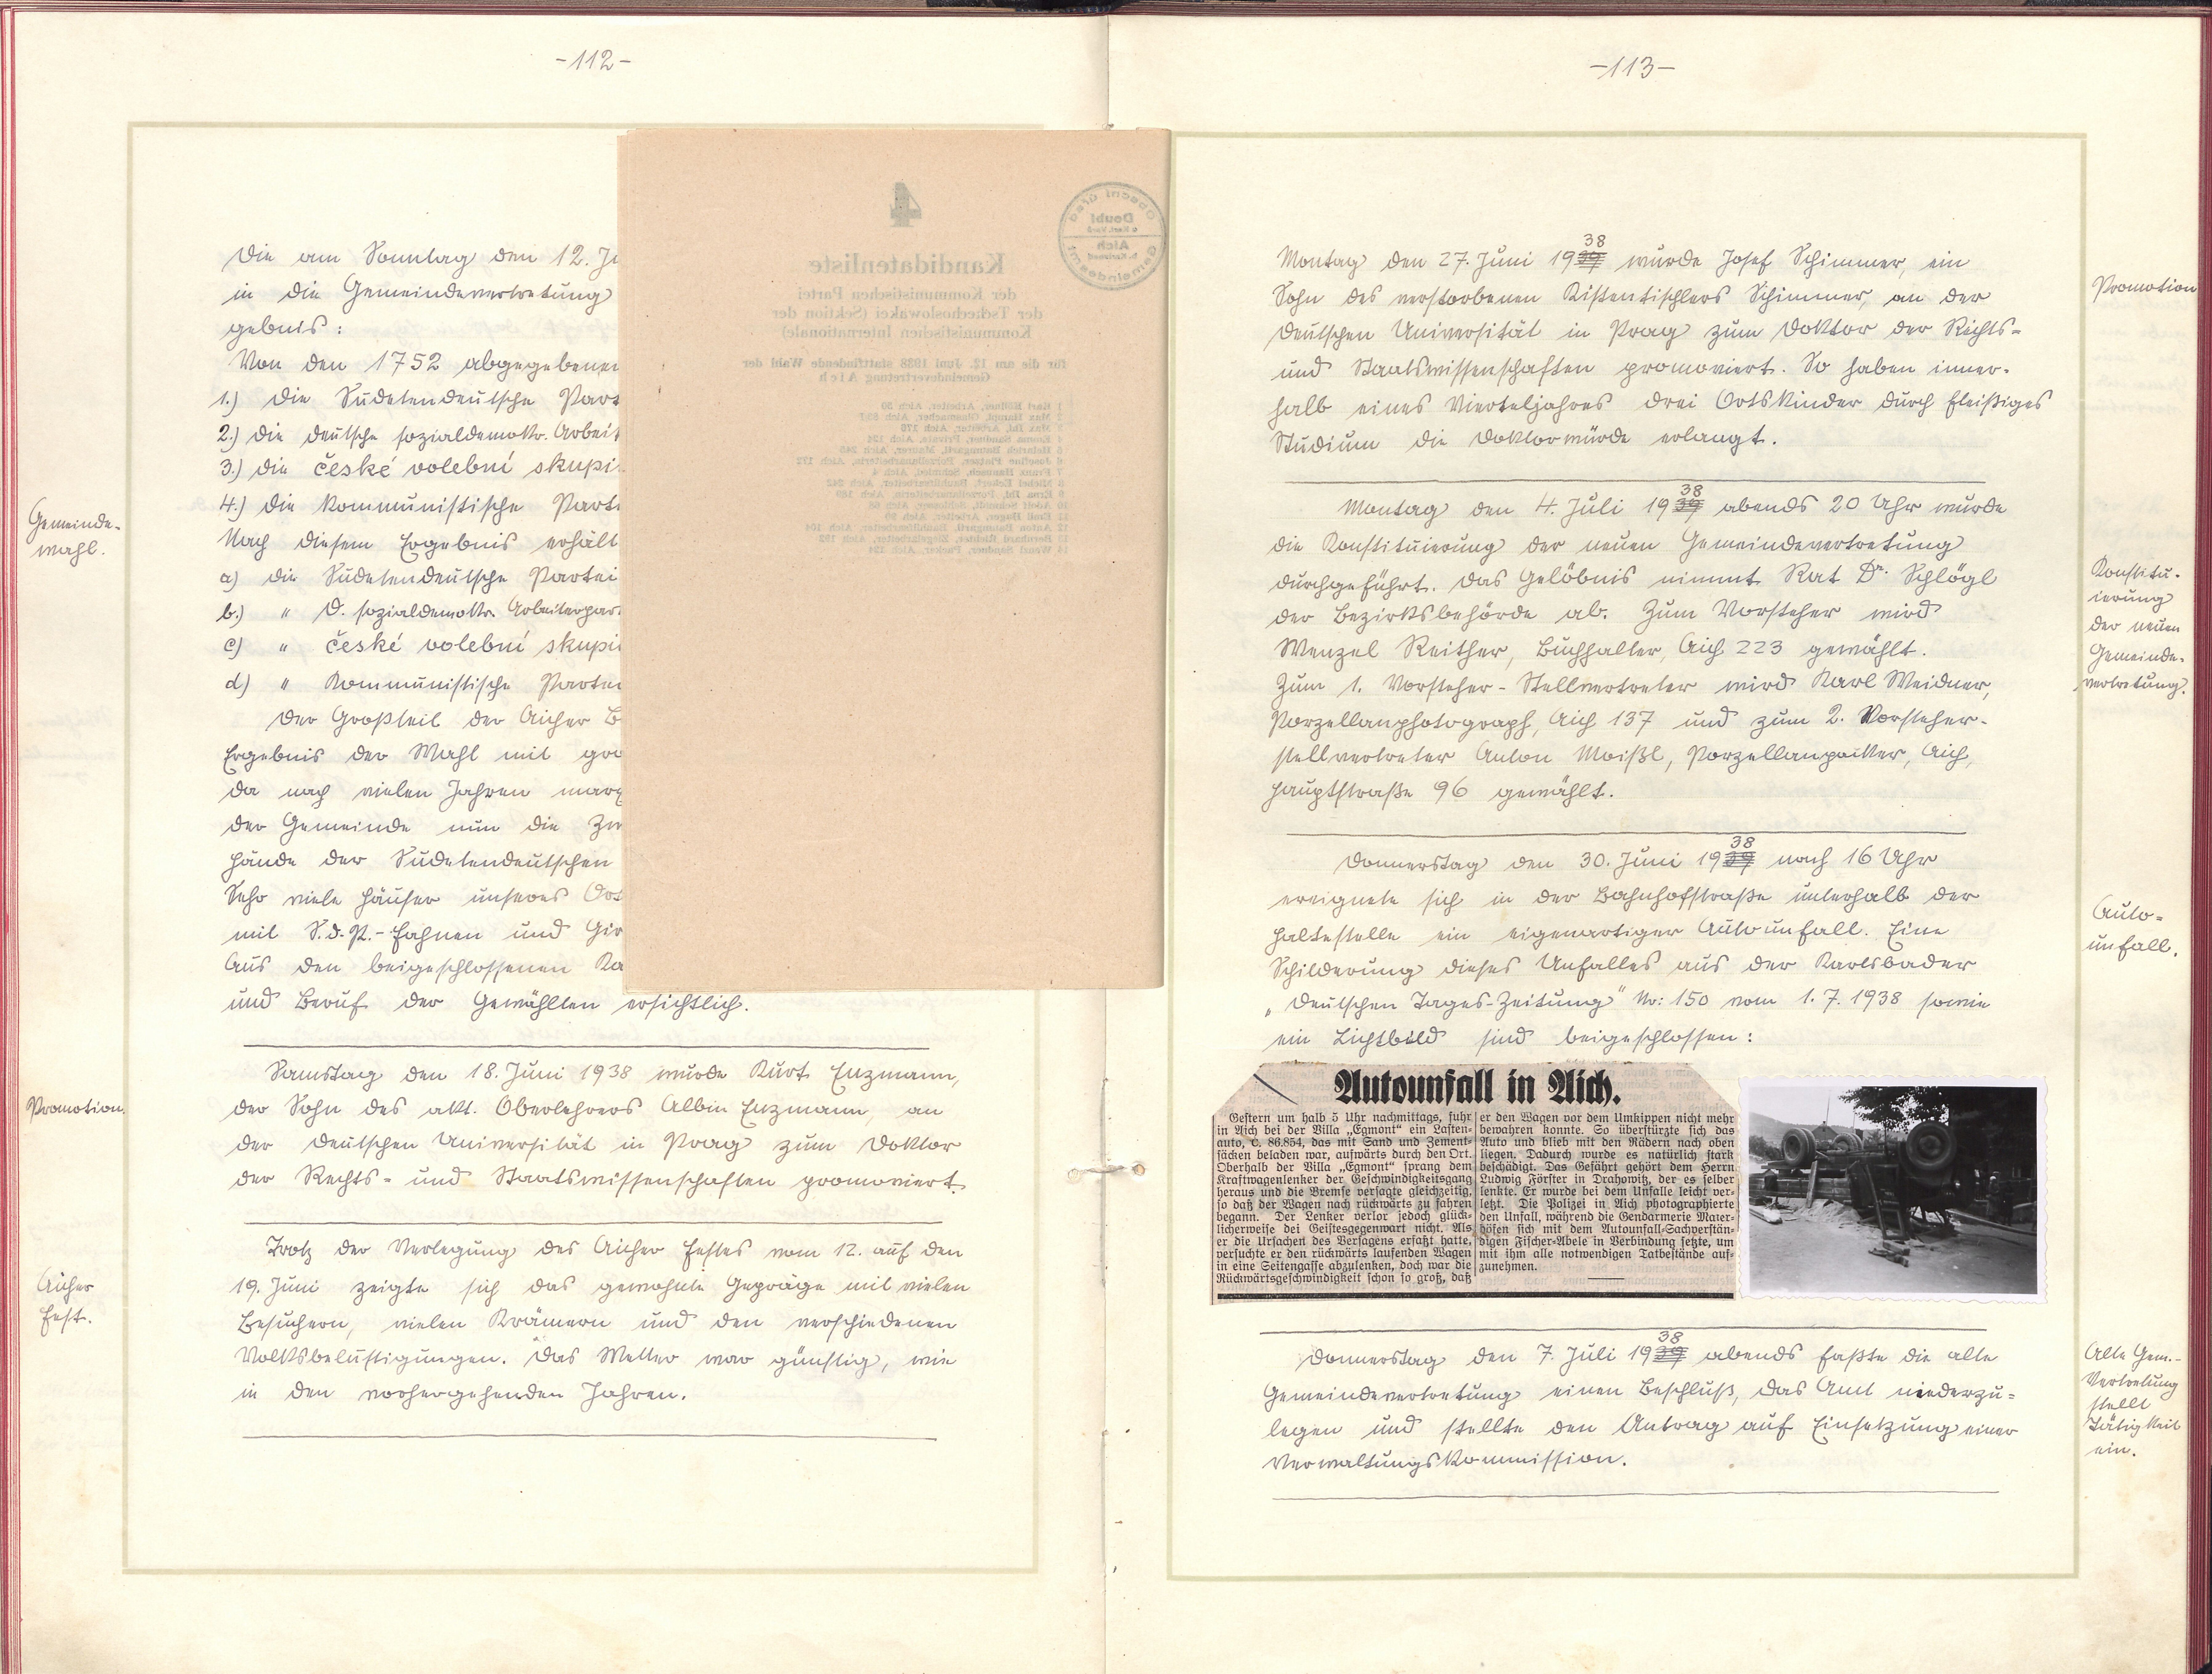 -112-
Gemeinde-
wahl.
Die am Sonntag den 12.
in die Gemeindevertretung
gebnis:
Von den 1752 abgegebenen
1.) die Sudetendeutsche Part
2.) die deutsche sozialdemokr. Arbeit
3.) die české volební skupi
4.) die kommunistische Part
Nach diesem Ergebnis erhält
a) die Sudetendeutsche Partei
b.) " D. sozialdemokr. Arbeiterpar
c) " české volební skupi
d) " kommunistische Partei
Der Großteil der Aicher B
Ergebnis der Wahl mit gro
da nach vielen Jahren marx
der Gemeinde nun die
Hände der Sudetendeutschen
Sehr viele Häuser unseres Ort
mit S.d.P.-Fahnen und Gir
Aus den beigeschlossenen Ka
und Beruf der Gewählten ersichtlich.
Promotion.
Samstag den 18. Juni 1938 wurde Kurt Enzmann,
der Sohn des akt. Oberlehrers Albin Enzmann, an
der deutschen Universität in Prag zum Doktor
der Rechts- und Staatswissenschaften promoviert.
Aicher
Fest.
Trotz der Verlegung des Aicher Festes vom 12. auf den
19. Juni zeigte sich das gewohnte Gepräge mit vielen
Besuchern, vielen Krämern und den verschiedenen
Volksbelustigungen. Das Wetter war günstig, wie
in den vorhergehenden Jahren.
4
Obecní úřad
Doubí
Aich
Gemeindeamt
Kandidatenliste
der Kommunistischen Partei
der Tschechoslowakei (Sektion der
Kommunistischen Internationale)
für die am 12. Juni 1938 stattfindende Wahl der
Gemeindevertretung Aich
-113-
Montag den 27. Juni 1938 wurde Josef Schimmer, ein
Sohn des verstorbenen Kistentischlers Schimmer, an der
deutschen Universität in Prag zum Doktor der Rechts-
und Staatswissenschaften promoviert. So haben inner-
halb eines Vierteljahres drei Ortskinder durch fleißiges
Studium die Doktorwürde erlangt.
Promotion
Montag den 4. Juli 1938 abends 20 Uhr wurde
die Konstituierung der neuen Gemeindevertretung
durchgeführt. Das Gelöbnis nimmt Rat Dr. Schlögl
der Bezirksbehörde ab. Zum Vorsteher wird
Wenzel Reither, Buchhalter, Aich 223 gewählt.
Zum 1. Vorsteher-Stellvertreter wird Karl Weidner,
Porzellanphotograph, Aich 137 und zum 2. Vorsteher-
stellvertreter Anton Moißl, Porzellanpacker, Aich,
Hauptstraße 96 gewählt.
Konstitu-
ierung
der neuen
Gemeinde-
vertretung.
Donnerstag den 30. Juni 1938 nach 16 Uhr
ereignete sich in der Bahnhofstraße unterhalb der
Haltestelle ein eigenartiger Autounfall. Eine
Schilderung dieses Unfalles aus der Karlsbader
„Deutschen Tages-Zeitung" Nr: 150 vom 1. 7. 1938 sowie
ein Lichtbild sind beigeschlossen:
Auto-
unfall.
Autounfall in Aich.
Gestern um halb 5 Uhr nachmittags, fuhr
in Aich bei der Villa „Egmont" ein Lasten-
auto, C. 86.854, das mit Sand und Zement-
säcken beladen war, aufwärts durch den Ort.
Oberhalb der Villa „Egmont" sprang dem
Kraftwagenlenker der Geschwindigkeitsgang
heraus und die Bremse versagte gleichzeitig,
so daß der Wagen nach rückwärts zu fahren
begann. Der Lenker verlor jedoch glück-
licherweise bei Geistesgegenwart nicht. Als
er die Ursachen des Versagens erfaßt hatte,
versuchte er den rückwärts laufenden Wagen
in eine Seitengasse abzulenken, doch war die
Rückwärtsgeschwindigkeit schon so groß, daß
er den Wagen vor dem Umkippen nicht mehr
bewahren konnte. So überstürzte sich das
Auto und blieb mit den Rädern nach oben
liegen. Dadurch wurde es natürlich stark
beschädigt. Das Gefährt gehört dem Herrn
Ludwig Förster in Drahowitz, der es selber
lenkte. Er wurde bei dem Unfalle leicht ver-
letzt. Die Polizei in Aich photographierte
den Unfall, während die Gendarmerie Maier-
höfen sich mit dem Autounfall-Sachverstän-
digen Fischer-Abele in Verbindung setzte, um
mit ihm alle notwendigen Tatbestände auf-
zunehmen.
Donnerstag den 7. Juli 1938 abends faßte die alte
Gemeindevertretung einen Beschluß, das Amt niederzu-
legen und stellte den Antrag auf Einsetzung einer
Verwaltungskommission.
Alte Gem.-
Vertretung
stellt
Tätigkeit
ein.